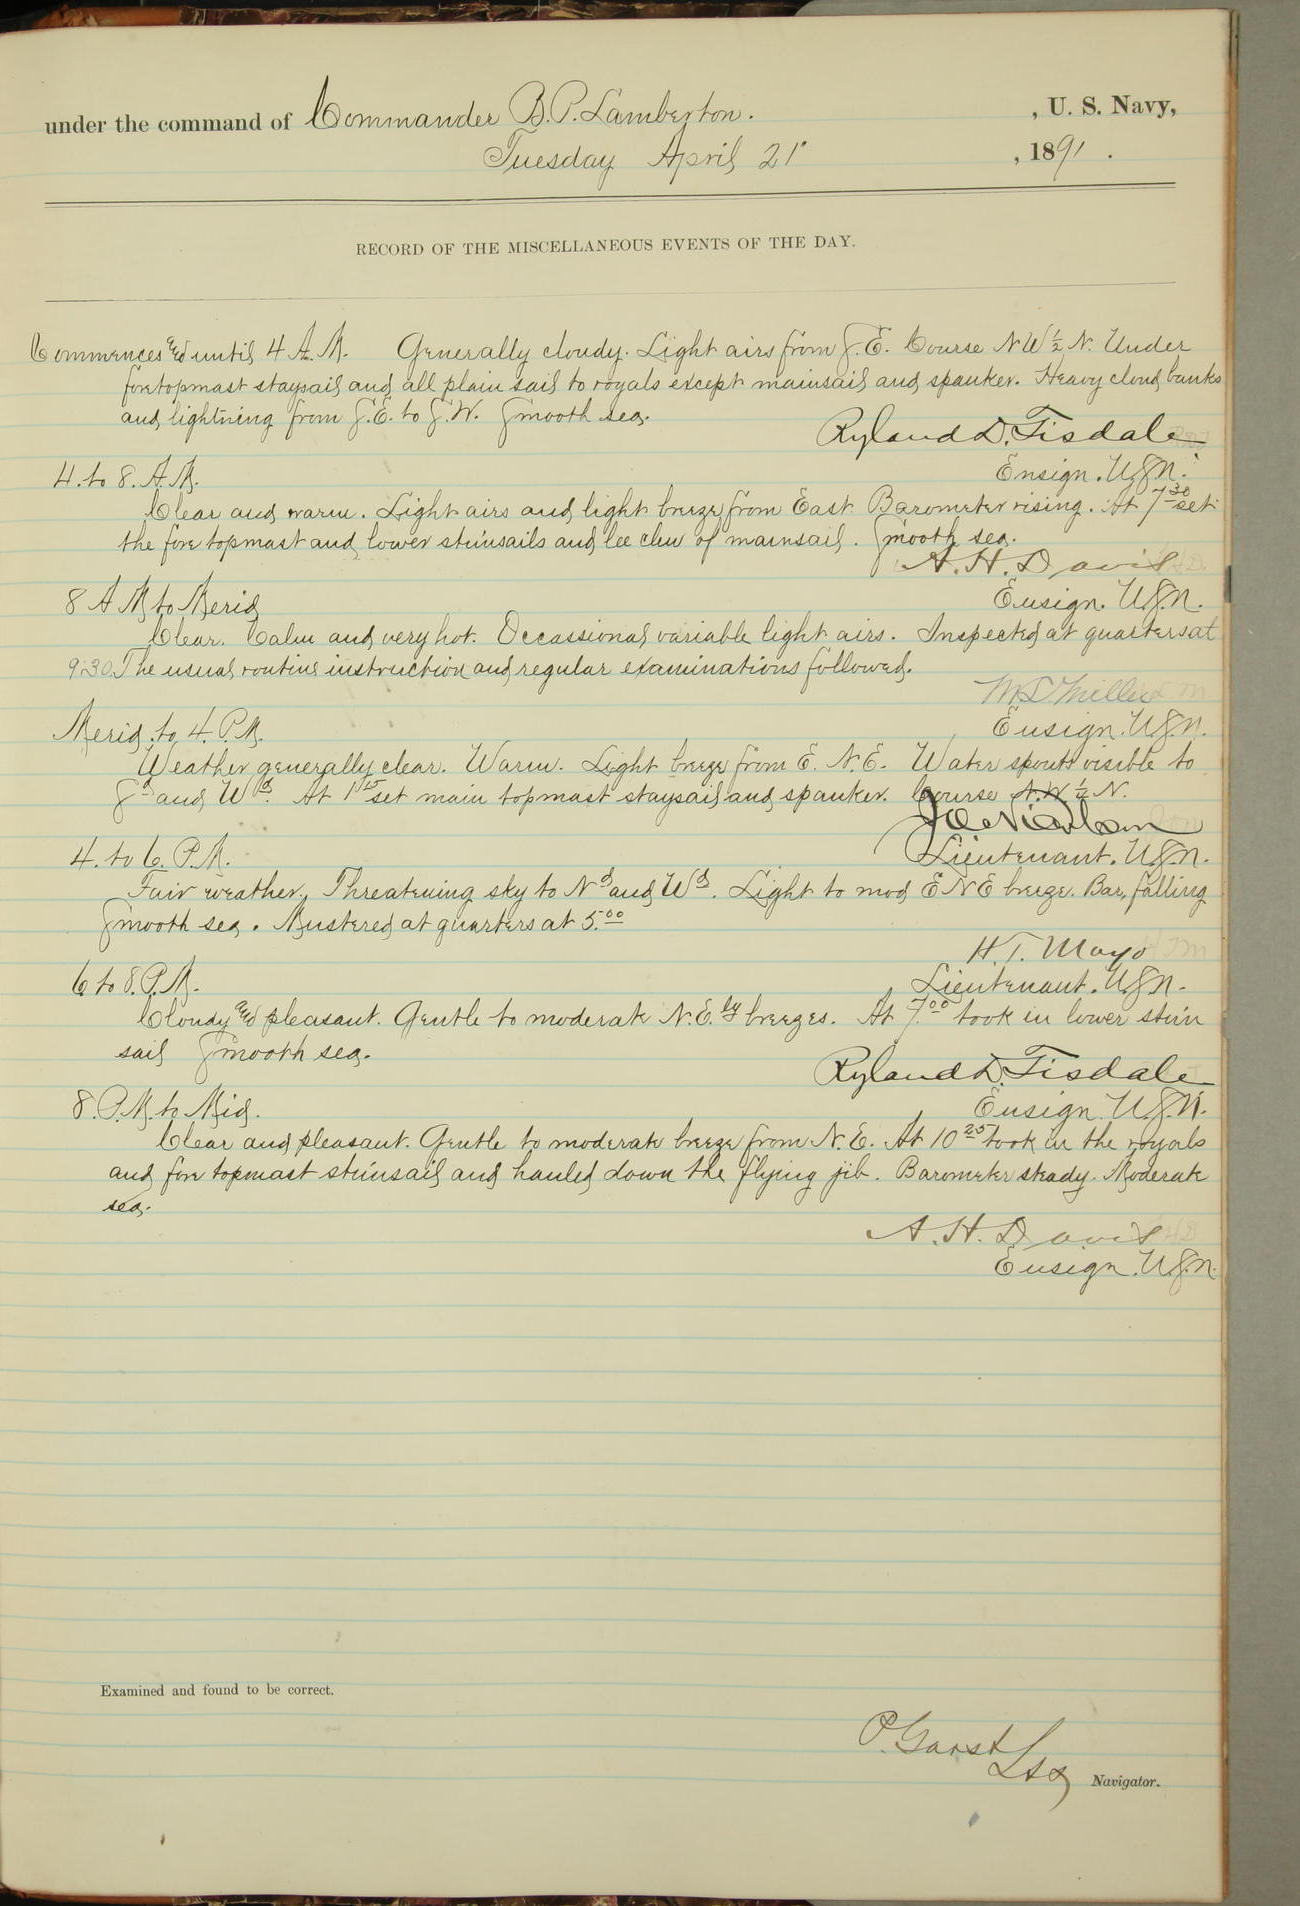 under the command of Commander B. P. Lamberton. , U. S. Navy,
Tuesday April 21" , 1891 .
RECORD OF THE MISCELLANEOUS EVENTS OF THE DAY.
Commences and until 4 A.M. Generally cloudy. Light airs from S.E. Course NW ½ N. Under
foretopmast staysail and all plain sail to royals except mainsail and spanker. Heavy cloud banks
and lightning from S.E. to S.W. Smooth sea.
Ryland D. Tisdale
4 to 8. A.M.
Ensign. U.S.N.
Clear and warm. Light airs and light breeze from East. Barometer rising. At 7 30 set
the fore topmast and lower stu'nsails and lee clew of mainsail. Smooth sea.
A. H. Davis
8 A M to Merid
Ensign. U.S.N.
Clear. Calm and very hot. Occassional variable light airs. Inspected at quarters at
9:30. The usual routine instruction and regular examinations followed.
Merid. to 4. P.M.
Ensign. U.S.N.
Weather generally clear. Warm. Light breeze from E. N.E. Water spouts visible to
Sd and Wd. At 1 15 set main topmast staysail and spanker. Course N.W ½ N.
4. to 6. P.M.
Lieutenant. U.S.N.
Fair weather, Threatening sky to Nd and Wd. Light to mod ENE breeze. Bar, falling
Smooth sea. Mustered at quarters at 5.00
H. T. Mayo
6 to 8. P.M.
Lieutenant. U.S.N.
Cloudy and pleasant. Gentle to moderate N.E.ly breezes. At 7.00 took in lower stu'n
sail Smooth sea.
Ryland D. Tisdale
8. P.M. to Mid.
Ensign. U.S.N.
Clear and pleasant. Gentle to moderate breeze from N.E. At 10 25 took in the royals
and fore topmast stu'nsail and hauled down the flying jib. Barometer steady. Moderate
sea.
A. H. Davis
Ensign. U.S.N.
Examined and found to be correct.
P. Garst
Navigator.